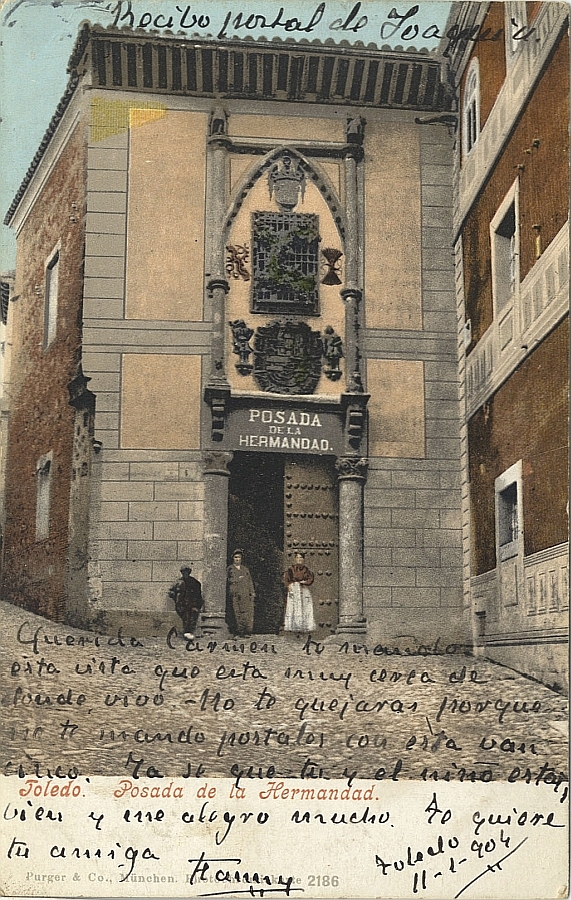 Recibo portal de Joaquin.
POSADA
DE LA
HERMANDAD.
Querida Carmen te mando
esta vista que esta muy cerca de
donde vivo. - No te quejaras porque
no te mando portales con esta van
cinco. Ya se que tu y el niño estais
Toledo. Posada de la Hermandad.
bien y me alegro mucho. Te quiere
tu amiga Fanny
Toledo
11-1-904
Purger & Co., München. 2186